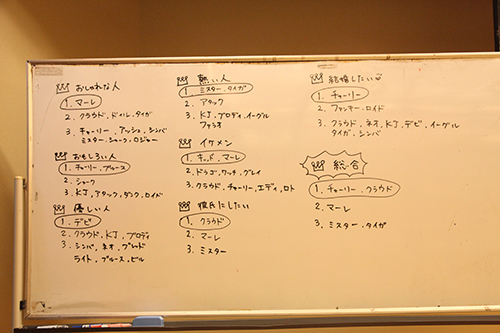 おしゃれな人
1. マーレ
2. クラウド、ドイル、タイガ
3. チャーリー、アッシュ、シンバ
ミスター、ショーク、ロジャー
おもしろい人
1. チャーリー、ブルース
2. ショーク
3. KJ、アタック、ダンク、ロイド
優しい人
1. デビ
2. クラウド、KJ、ブロディ
3. シンバ、ネオ、ブレッド
ライト、ブルース、ビル
熱い人
1. ミスター、タイガ
2. アタック
3. KJ、ブロディ、イーグル
ファラオ
イケメン
1. キッド、マーレ
2. ドラゴ、ワッチ、グレイ
3. クラウド、チャーリー、エディ、ロト
彼氏にしたい
1. クラウド
2. マーレ
3. ミスター
結婚したい
1. チャーリー
2. ファンキー、ロイド
3. クラウド、ネオ、KJ、デビ、イーグル
タイガ、シンバ
総合
1. チャーリー、クラウド
2. マーレ
3. ミスター、タイガ